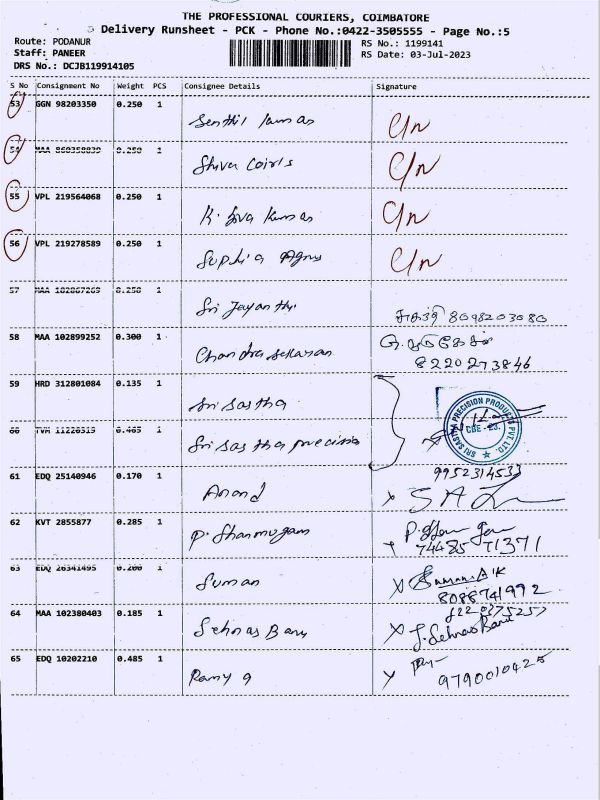 THE PROFESSIONAL COURIERS, COIMBATORE
Delivery Runsheet - PCK - Phone No.:0422-3505555 - Page No.:5
Route: PODANUR
RS No.: 1199141
Staff: PANEER
RS Date: 03-Jul-2023
DRS No.: DCJB119914105
S No Consignment No Weight PCS Consignee Details Signature
53 GGN 98203350 0.250 1
Senthil kumar C/n
54 MAA 1
Shiva C/n
55 VPL 219564068 0.250 1
K. Siva Kumar C/n
56 VPL 219278589 0.250 1
Sophia Agnus C/n
57 MAA 1
Sri Jayanthi 8098203080
58 MAA 102899252 0.300 1
Chandra sekaran
8220273846
59 HRD 312801084 0.135 1
Sri Sastha
SRI SASTHA PRECISION PRODUCTS PVT. LTD.
CBE - 23.
60 TVM 11220519 0.465 1
Sri Sastha precision
61 EDQ 25140946 0.170 1 9952314533
Anand
62 KVT 2855877 0.285 1
P. Shanmugam
74485 71371
63 EDQ 26341495 0.200 1
Suman
8088741992
64 MAA 102380403 0.185 1
Sehnas Banu J. Sehnas Banu
65 EDQ 10202210 0.485 1
Ramya 9790010425